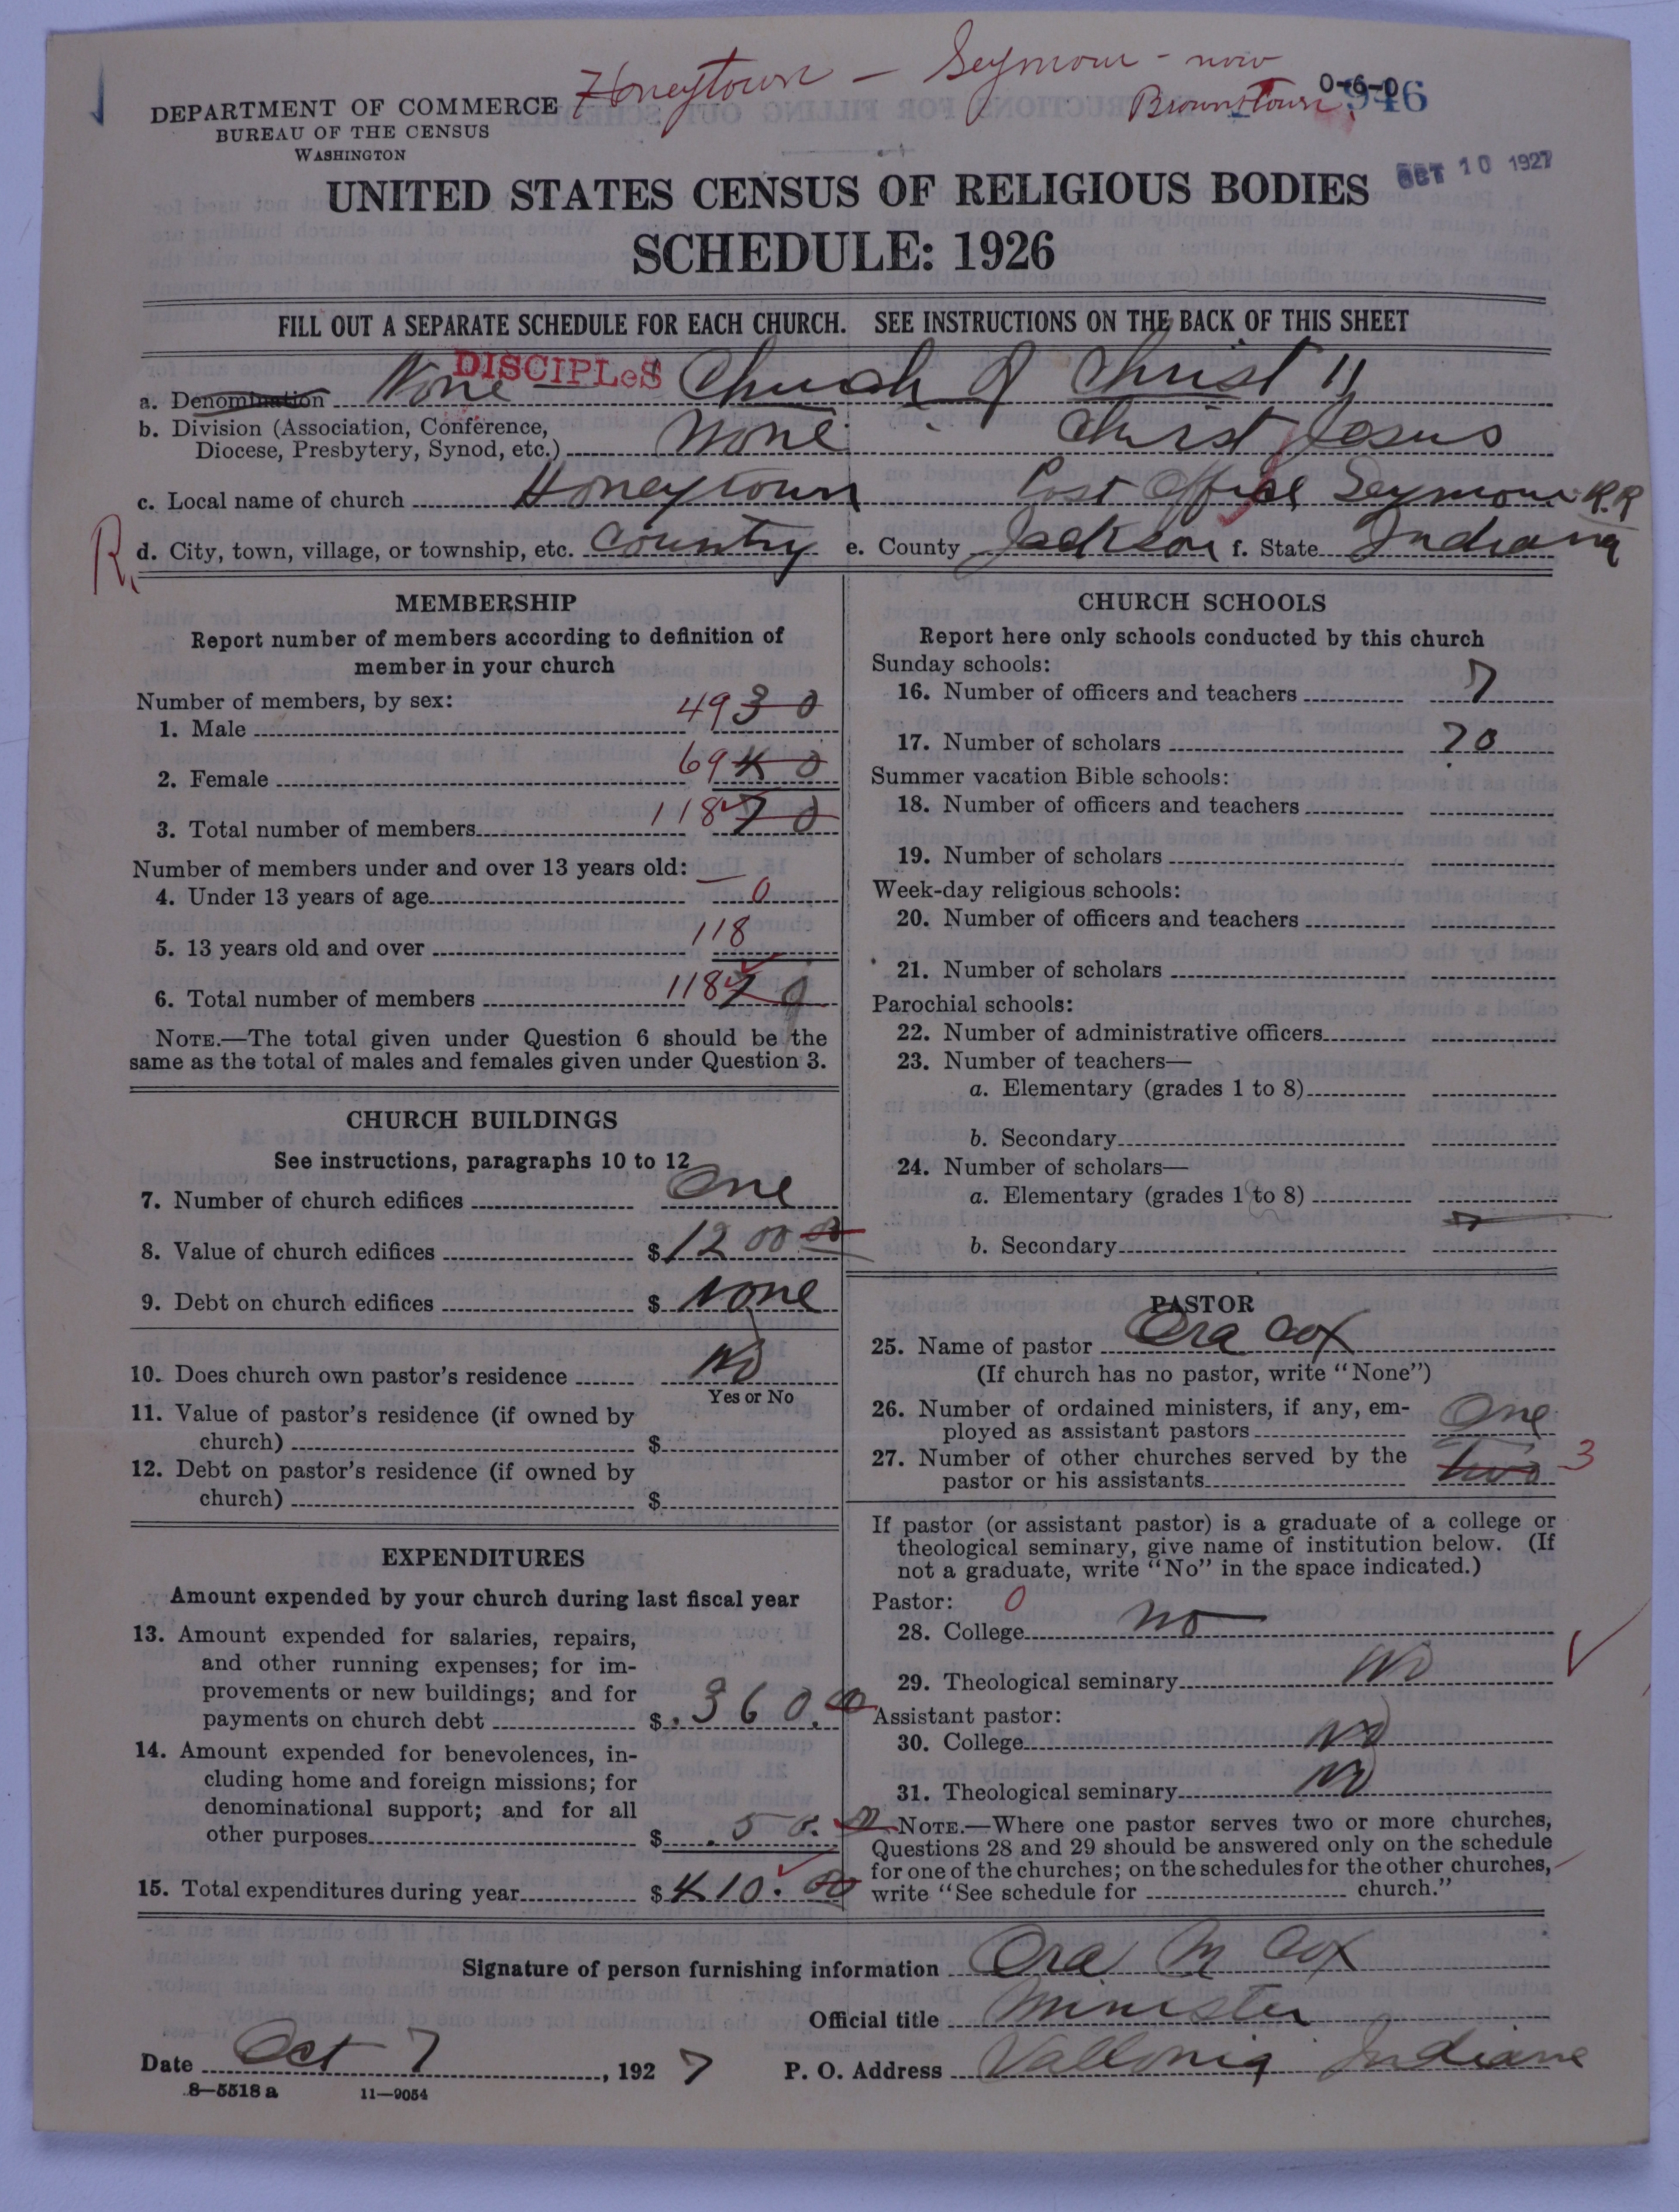 Honeytown — Seymour - now
Brownstown
0-6-0
946
DEPARTMENT OF COMMERCE
BUREAU OF THE CENSUS
WASHINGTON
OCT 10 1927
UNITED STATES CENSUS OF RELIGIOUS BODIES
SCHEDULE: 1926
FILL OUT A SEPARATE SCHEDULE FOR EACH CHURCH. SEE INSTRUCTIONS ON THE BACK OF THIS SHEET
a. Denomination None DISCIPLeS Church of Christ
b. Division (Association, Conference,
Diocese, Presbytery, Synod, etc.) None Christ Jesus
c. Local name of church Honeytown Post Office Seymour R.R
R. d. City, town, village, or township, etc. Country e. County Jackson f. State Indiana
MEMBERSHIP
Report number of members according to definition of
member in your church
Number of members, by sex:
1. Male 49 30
2. Female 69 40
3. Total number of members 118 70
Number of members under and over 13 years old:
4. Under 13 years of age 0
5. 13 years old and over 118
6. Total number of members 118 70
NOTE.—The total given under Question 6 should be the
same as the total of males and females given under Question 3.
CHURCH BUILDINGS
See instructions, paragraphs 10 to 12
7. Number of church edifices One
8. Value of church edifices $ 1200 00
9. Debt on church edifices $ None
10. Does church own pastor's residence No
Yes or No
11. Value of pastor's residence (if owned by
church) $
12. Debt on pastor's residence (if owned by
church) $
EXPENDITURES
Amount expended by your church during last fiscal year
13. Amount expended for salaries, repairs,
and other running expenses; for im-
provements or new buildings; and for
payments on church debt $ 360.00
14. Amount expended for benevolences, in-
cluding home and foreign missions; for
denominational support; and for all
other purposes $ 50.00
15. Total expenditures during year $ 410.00
CHURCH SCHOOLS
Report here only schools conducted by this church
Sunday schools:
16. Number of officers and teachers 7
17. Number of scholars 70
Summer vacation Bible schools:
18. Number of officers and teachers
19. Number of scholars
Week-day religious schools:
20. Number of officers and teachers
21. Number of scholars
Parochial schools:
22. Number of administrative officers
23. Number of teachers—
a. Elementary (grades 1 to 8)
b. Secondary
24. Number of scholars—
a. Elementary (grades 1 to 8)
b. Secondary
PASTOR
25. Name of pastor Ora Cox
(If church has no pastor, write "None")
26. Number of ordained ministers, if any, em-
ployed as assistant pastors One
27. Number of other churches served by the
pastor or his assistants two 3
If pastor (or assistant pastor) is a graduate of a college or
theological seminary, give name of institution below. (If
not a graduate, write "No" in the space indicated.)
Pastor: 0
28. College no
29. Theological seminary No
Assistant pastor:
30. College No
31. Theological seminary No
NOTE.—Where one pastor serves two or more churches,
Questions 28 and 29 should be answered only on the schedule
for one of the churches; on the schedules for the other churches,
write "See schedule for church."
Signature of person furnishing information Ora M Cox
Official title Minister
Date Oct 7, 1927 P. O. Address Vallonia Indiana
8—5518 a 11—9054